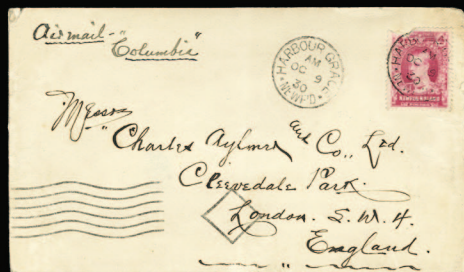 Airmail - "Columbia"
HARBOUR GRACE
AM
OC 9
30
NEWF'D
Messrs
Charles Aylmer and Co., Ltd.
Cleevedale Park.
London. S.W.4.
England.